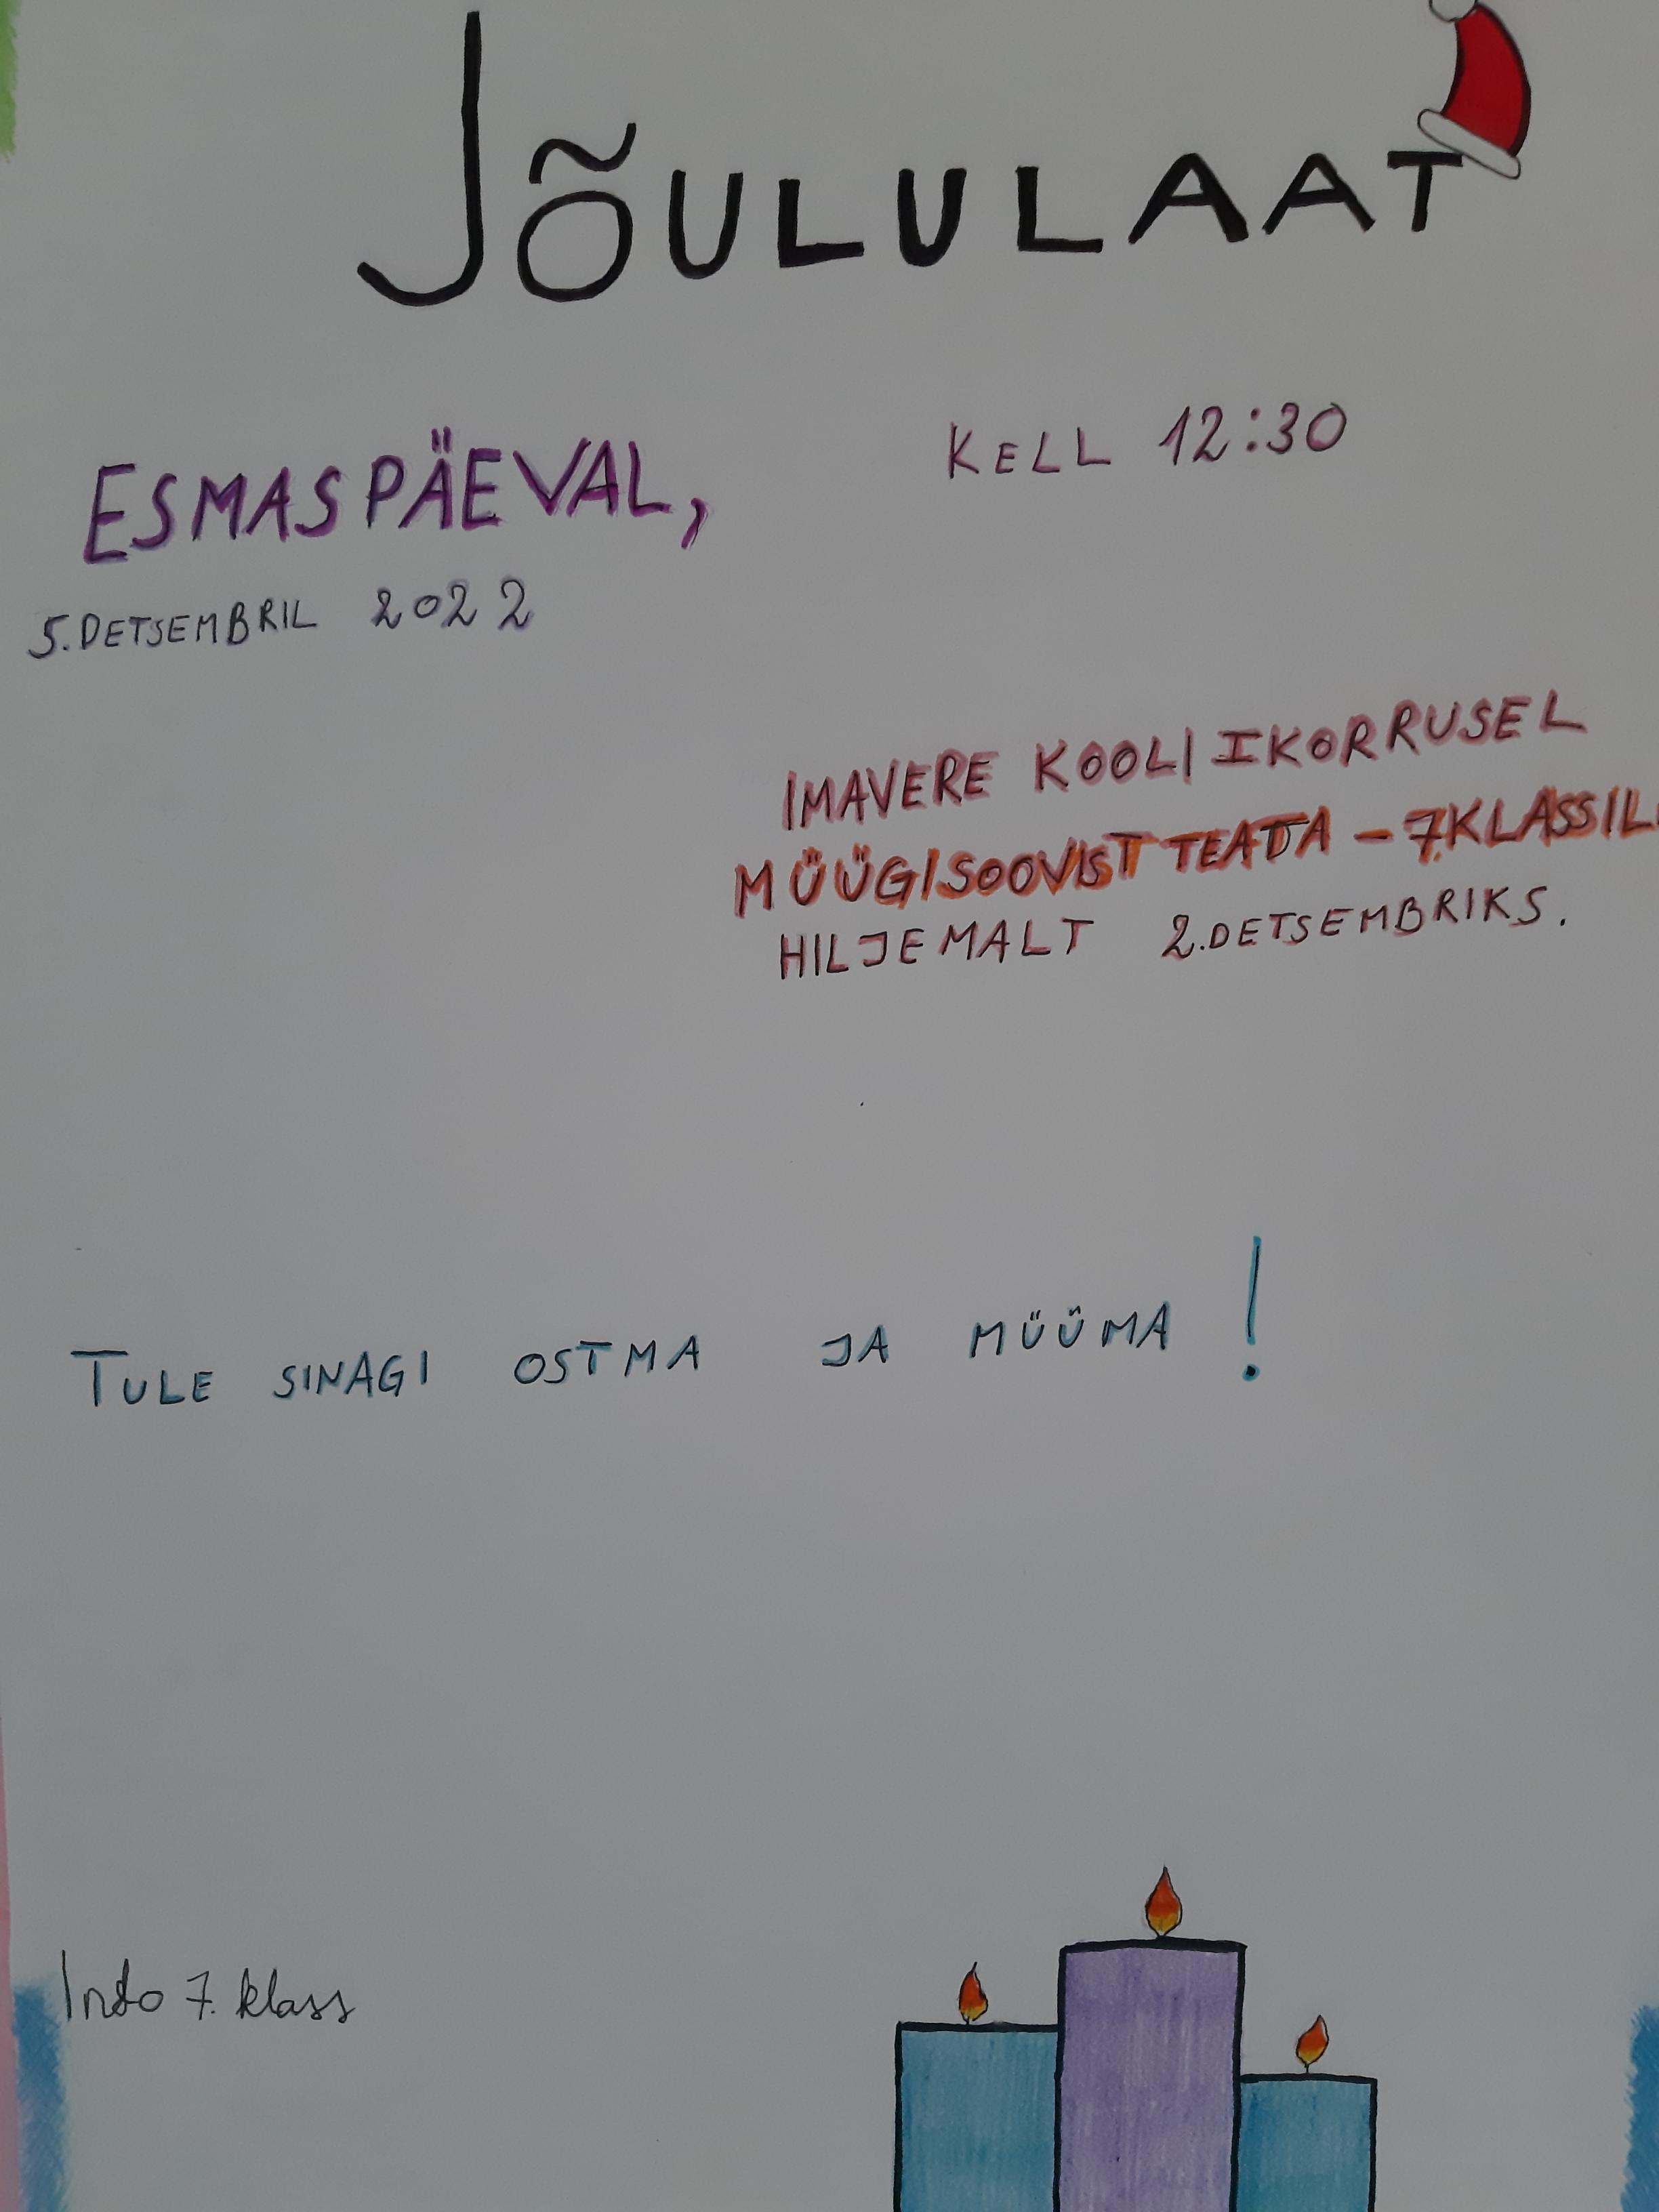 JÕULULAAT
ESMASPÄEVAL,
KELL 12:30
5. DETSEMBRIL 2022
IMAVERE KOOLI I KORRUSEL
MÜÜGISOOVIST TEADA - 7.KLASSIL
HILJEMALT 2. DETSEMBRIKS.
TULE SINAGI OSTMA JA MÜÜMA!
Info 7. klass